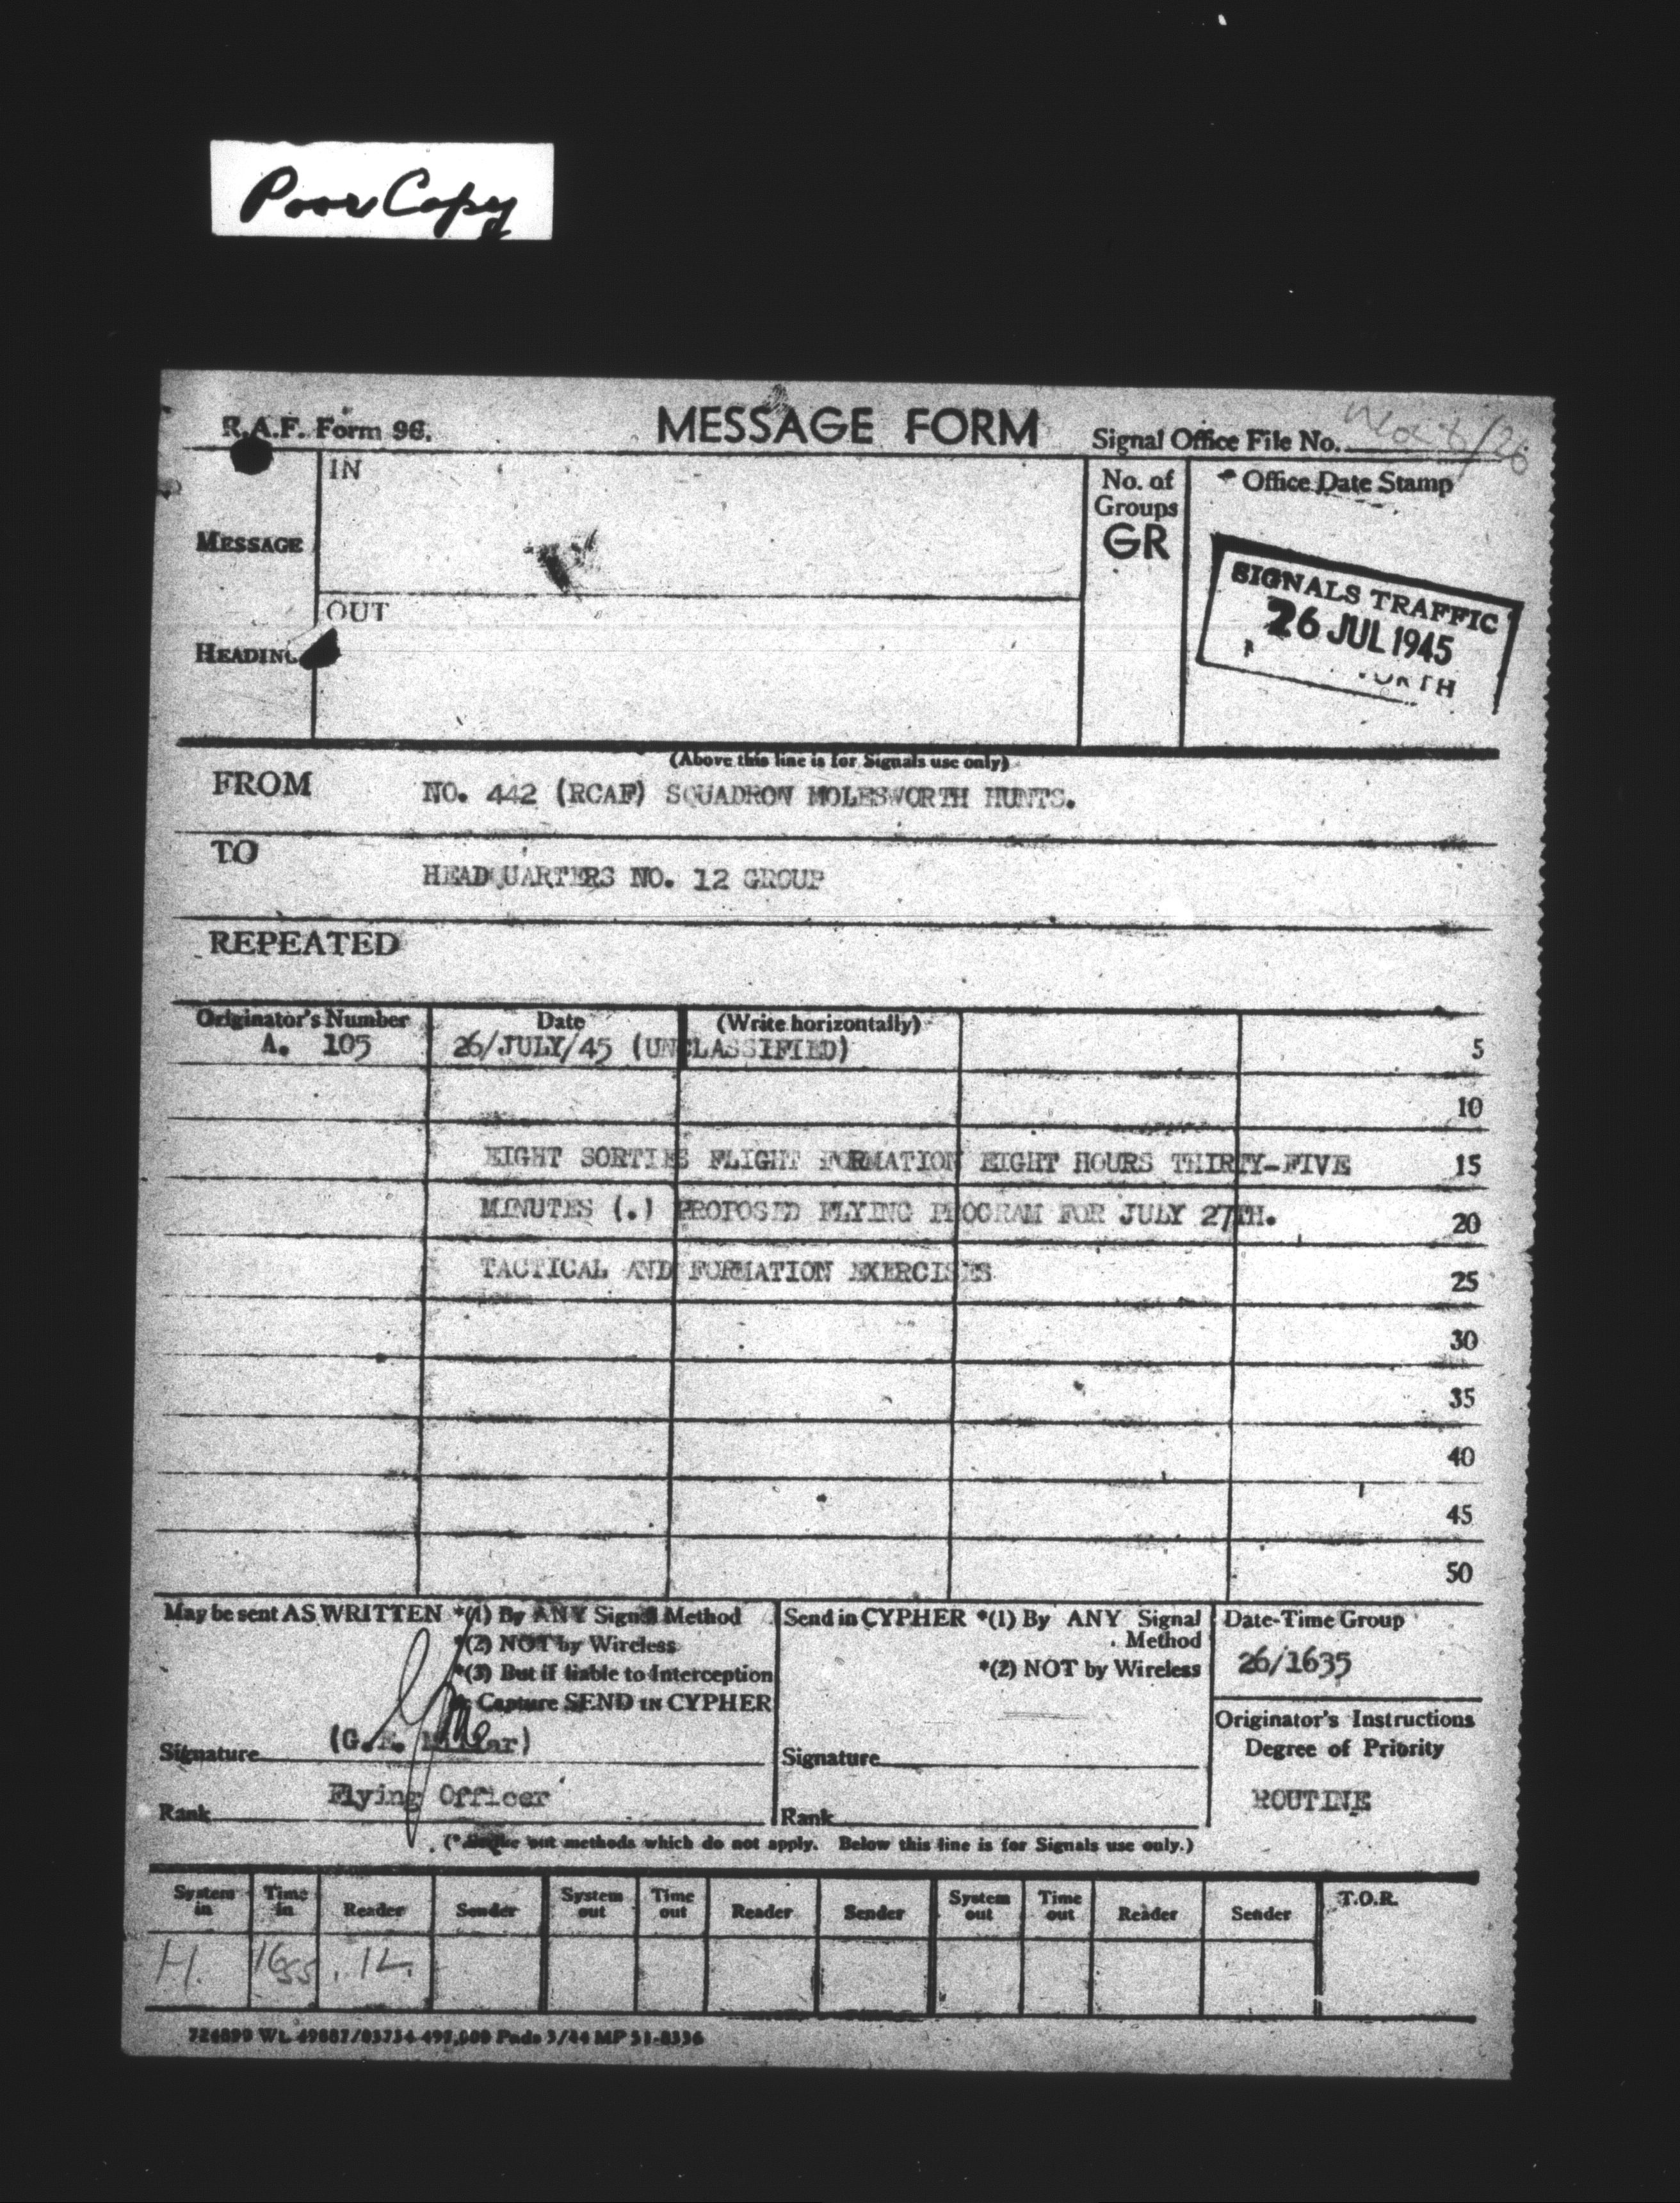 Poor Copy
R.A.F. Form 96.
MESSAGE FORM
Signal Office File No.
IN
No. of
Groups
GR
Office Date Stamp
MESSAGE
SIGNALS TRAFFIC
26 JUL 1945
OUT
HEADING
(Above this line is for Signals use only)
FROM NO. 442 (RCAF) SQUADRON MOLESWORTH HUNTS.
TO
HEADQUARTERS NO. 12 GROUP
REPEATED
Originator's Number Date (Write horizontally)
A. 105 26/JULY/45 (UNCLASSIFIED) 5
10
EIGHT SORTIES FLIGHT FORMATION EIGHT HOURS THIRTY-FIVE 15
MINUTES (.) PROPOSED FLYING PROGRAM FOR JULY 27TH. 20
TACTICAL AND FORMATION EXERCISES 25
30
35
40
45
50
May be sent AS WRITTEN *(1) By ANY Signal Method
*(2) NOT by Wireless
*(3) But if liable to Interception
or Capture SEND IN CYPHER
(G.E. Millar)
Signature
Flying Officer
Rank
Send in CYPHER *(1) By ANY Signal
Method
*(2) NOT by Wireless
Signature
Rank
Date-Time Group
26/1635
Originator's Instructions
Degree of Priority
ROUTINE
(* Strike out methods which do not apply. Below this line is for Signals use only.)
System in Time in Reader Sender System out Time out Reader Sender System out Time out Reader Sender T.O.R.
H. 1655